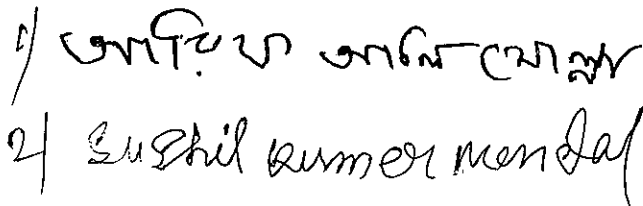 ১/ আরিফা আলি মোল্লা
২/ Sushil kumer mondal